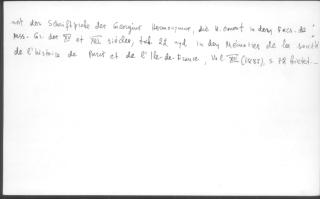 mit der Schriftprobe des Georgius Hermonymus, die H. Omont in dem Facs. de
mss. Gr. des XV et XVI siècles, taf. 22 und in den Mémoires de la société
de l'histoire de Paris et de l'Ile-de-France, Vol. XII (1885), S. 78 bietet.